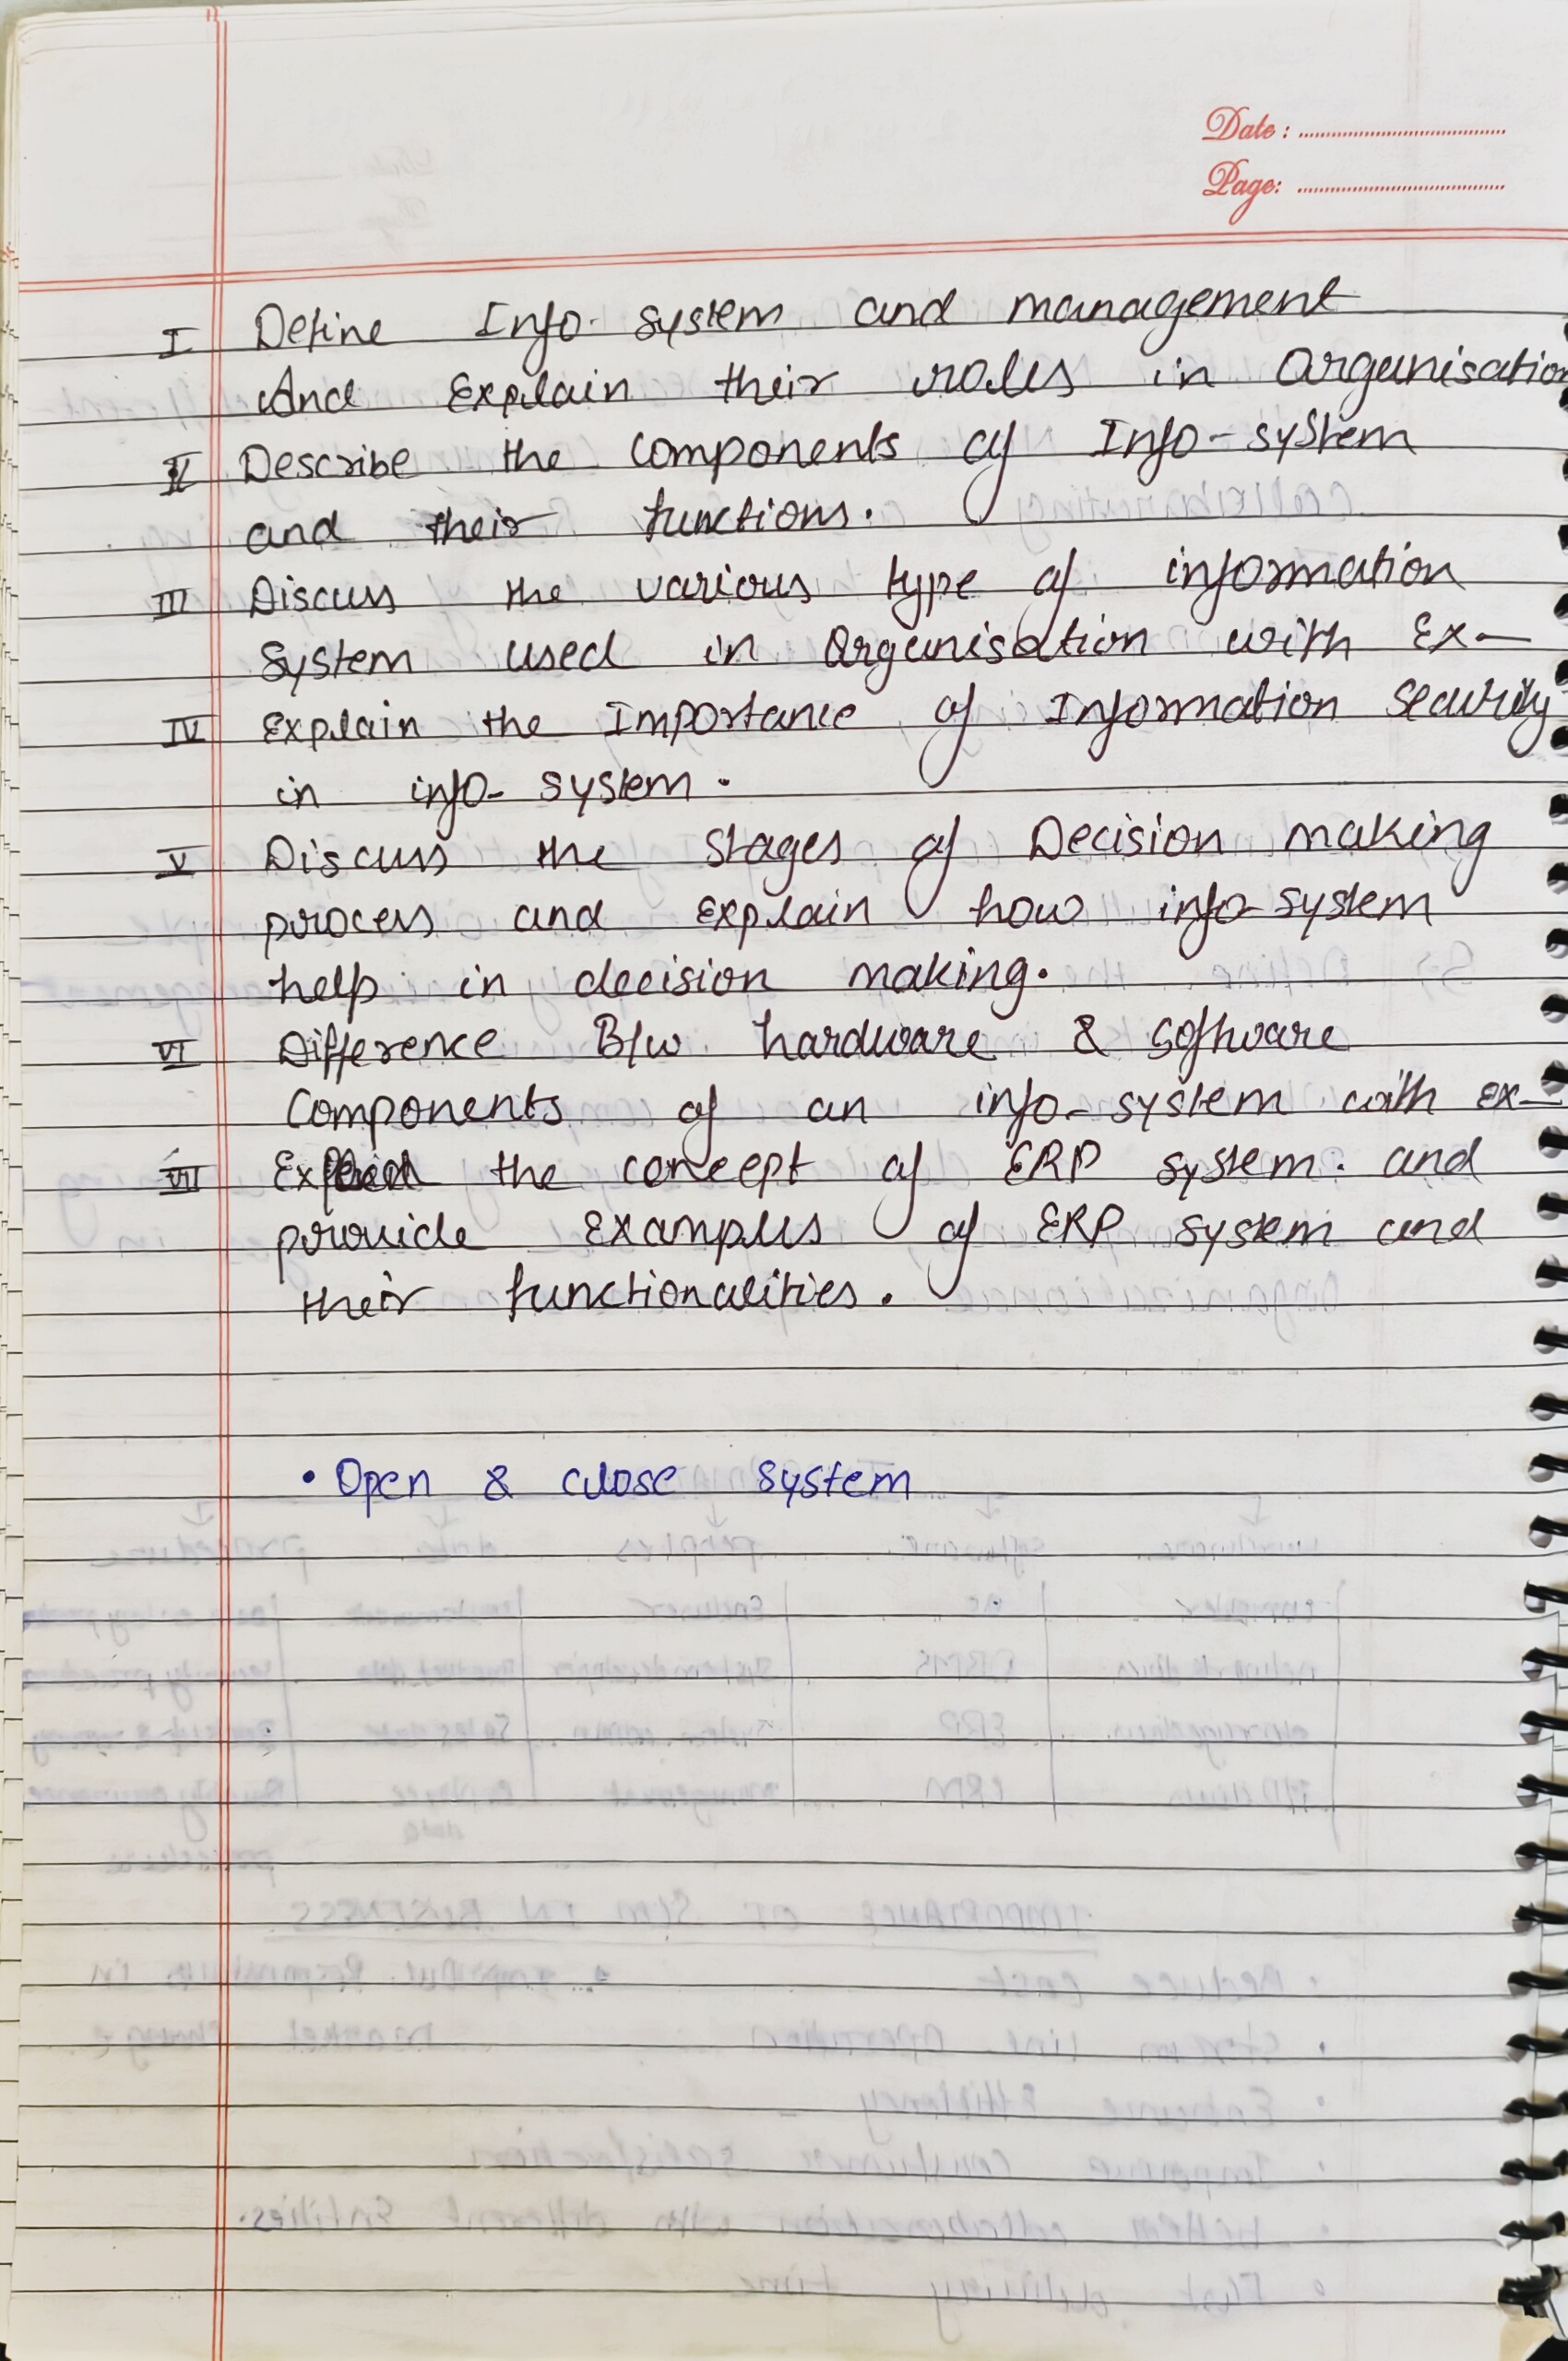 Date :
Page:
I Define Info- system and management
And Explain their roles in Organisation
II Describe the components of Info-system
and their functions.
III Discuss the various type of information
System used in Organisation with Ex-
IV Explain the Importance of Information Security
in info- system.
V Discuss the stages of Decision making
process and explain how info-system
help in decision making.
VI Difference B/w hardware & software
Components of an info-system with ex-
VII Explain the concept of ERP system. and
provide Examples of ERP system and
their functionalities.
• Open & close system